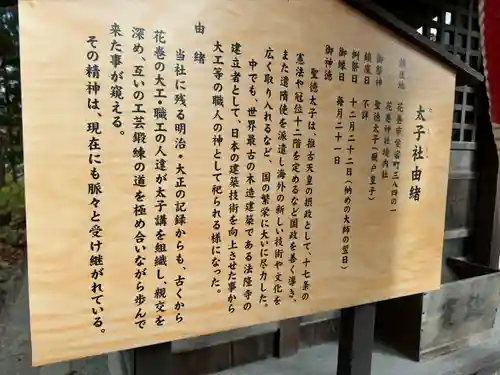 太子社由緒
鎮座地 花巻市愛宕町三八四の一
花巻神社境内社
御祭神 聖徳太子(厩戸皇子)
鎮座日 不詳
例祭日 十二月二十二日(納めの大師の翌日)
御縁日 毎月二十一日
御神徳
聖徳太子は、推古天皇の摂政として、十七条の
憲法や冠位十二階を定めるなど国政を善く導き、
また遣隋使を派遣し海外の新しい技術や文化を
広く取り入れるなど、国の繁栄に大いに尽力した。
中でも、世界最古の木造建築である法隆寺の
建立者として、日本の建築技術を向上させた事から
大工等の職人の神として祀られる様になった。
由緒
当社に残る明治・大正の記録からも、古くから
花巻の大工・職工の人達が太子講を組織し、親交を
深め、互いの工芸鍛練の道を極め合いながら歩んで
来た事が窺える。
その精神は、現在にも脈々と受け継がれている。